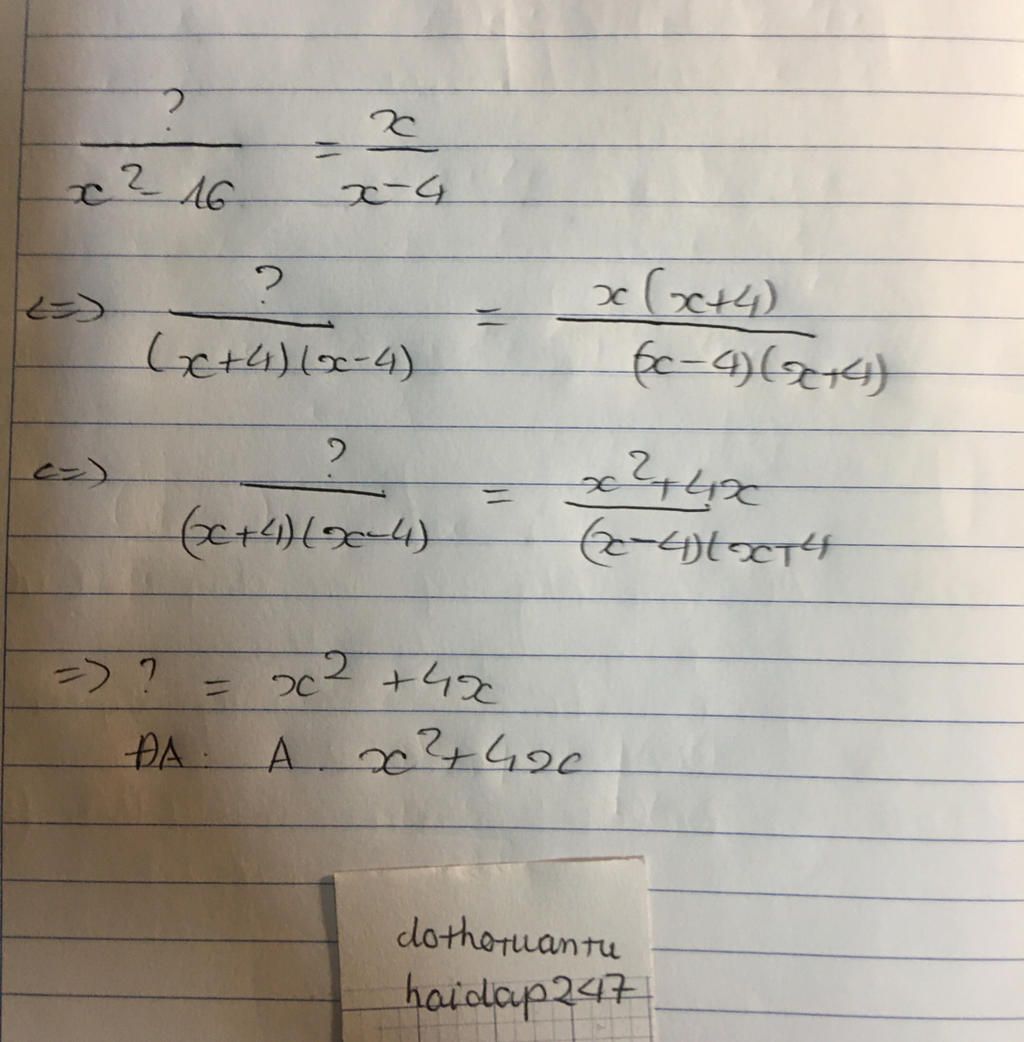 ?/(x² - 16) = x/(x-4)
<=> ?/((x+4)(x-4)) = x(x+4)/((x-4)(x+4))
<=> ?/((x+4)(x-4)) = (x²+4x)/((x-4)(x+4
=> ? = x² + 4x
ĐA: A. x²+4x
dothotuantu
hoidap247